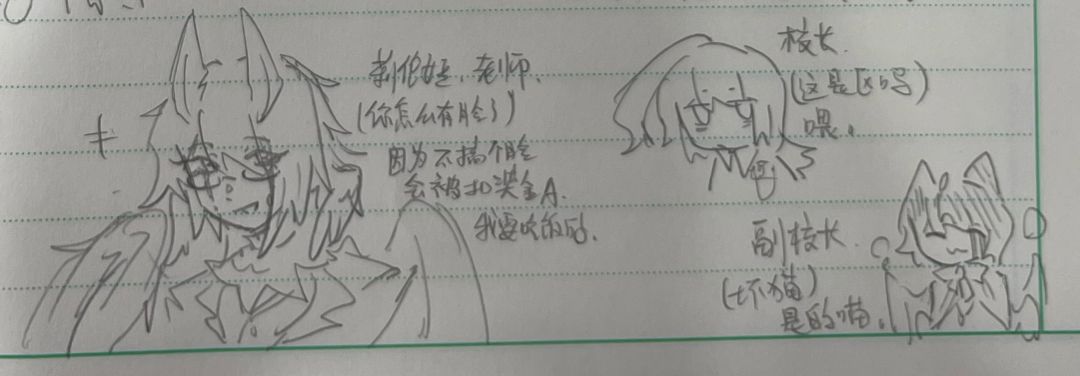 莉伦娅.老师、
(你怎么有脸了)
因为不搞个脸
会被扣奖金A.
我要吃饭的.
校长.
(这是区的号)
喂.
副校长.
(坏猫)
是的喵.